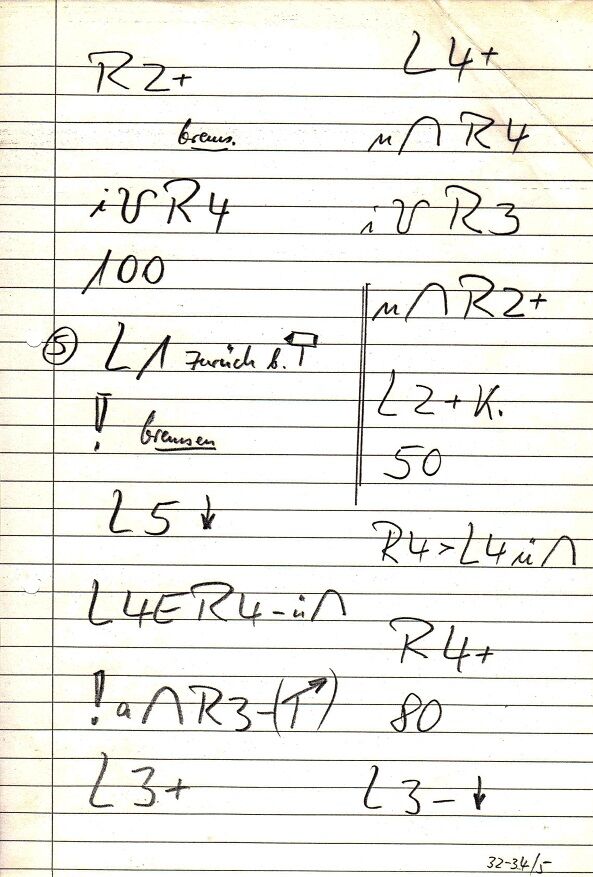 R2+
brems.
i V R4
100
⑤ L1 zurück b. T
! bremsen
L5 ↓
L4 E R4- ü ∩
! a ∩ R3- (T↗)
L3+
L4+
n ∩ R4
i V R3
n ∩ R2+
L2+ K.
50
R4 > L4 ü ∩
R4+
80
L3- ↓
32-34/5